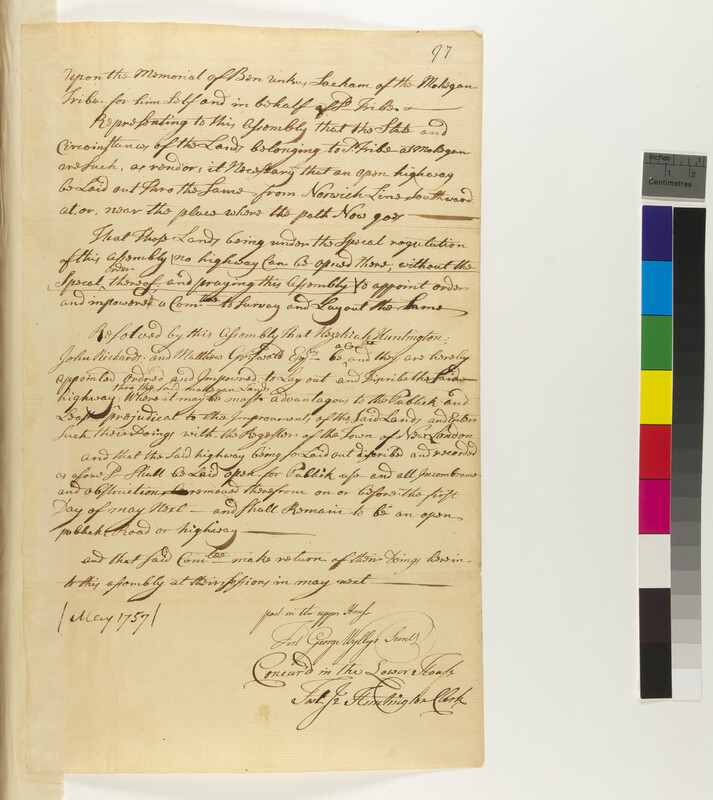 97
Upon the Memorial of Ben Unkus Sacham of the Mohegan
Tribe for him Self and in behalf of sd Tribe
Representing to this Assembly that the State and
Circumstances of the Lands belonging to sd Tribe at Mohegan
are Such, as renders it Necessary that an open highway
be Laid out Thro the Same from Norwich Line Southward
at, or, near the place where the path Now goes
That Those Lands being under the Specal regulation
of this assembly no highway Can be opened there, without the
order
Specal thereof, and praying this Assembly to appoint order
and impowered a Comtee to Survay and Layout the Same
Resolved by this Assembly that Hezekiah Huntington,
a Comtee
John Richards, and Matthew Griswold Esqrs be and they are hereby
appointed ordred and Impowred to Lay out and Discribe the Said
thro the said Mohegan Lands
highway, Where it may be most advantagous to the Publick and
Least Prejudical to the Improvments of the Said Lands and Enter
Such their Doings with the Register of the Town of New London
and that the Said highway being so Laid out discribed and recorded
as afore sd Shall be Laid open for Publick use and all Incombrance
and obstruction removed therefrom on or before the first
Day of may Next and Shall Remain to be an open
publick Road or highway
and that said Comtee make return of their Doings herein
to this assembly at their sessions in may next
/May 1757/
past in the upper House
Test George Wyllys Secret
Concurd in the Lower House
Test Jr Huntington Clerk
Inches
1
2
Centimetres